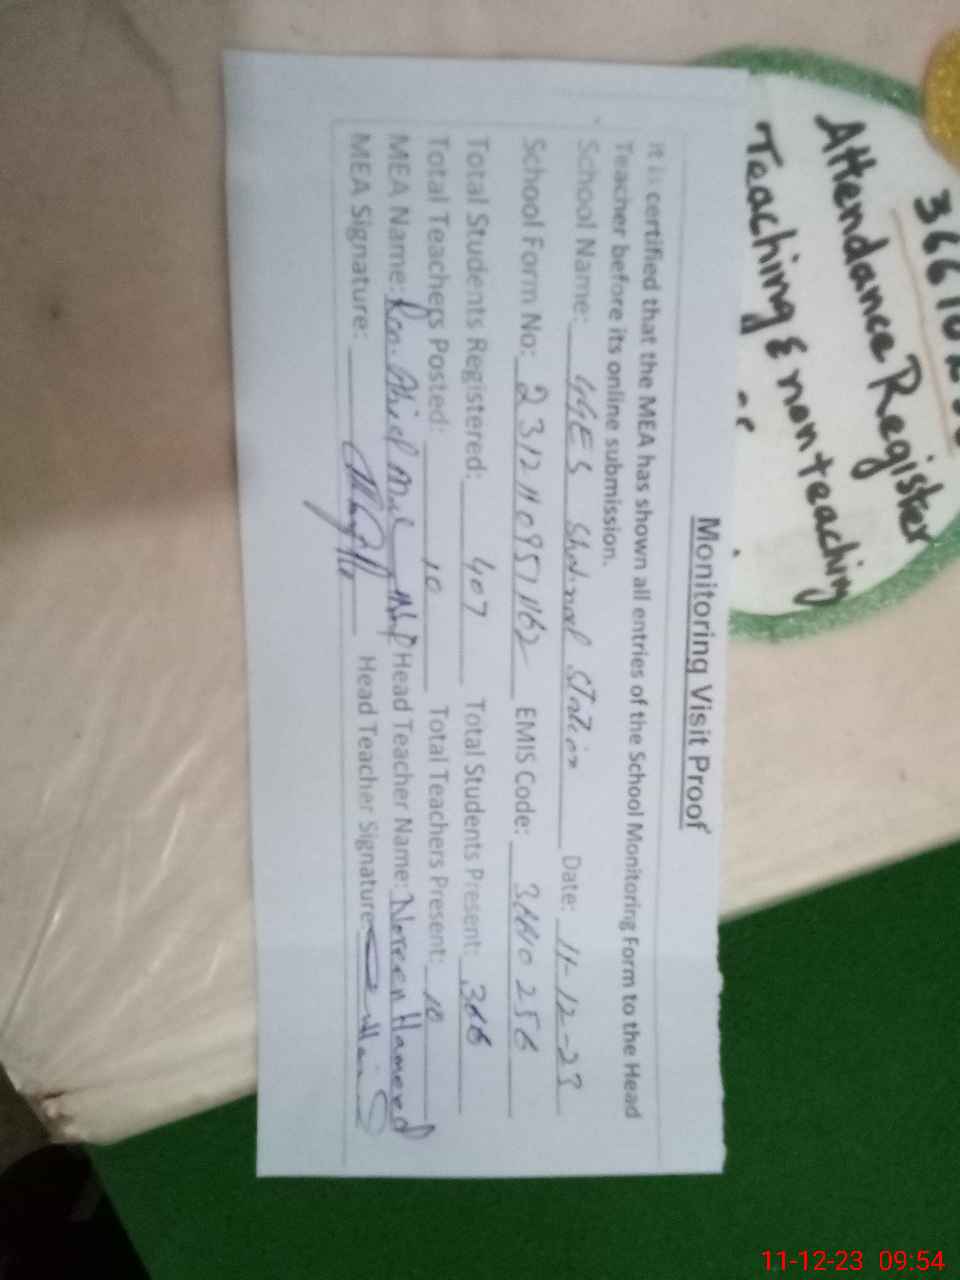 Monitoring Visit Proof
It is certified that the MEA has shown all entries of the School Monitoring Form to the Head
Teacher before its online submission.
School Name: GGES Station Date: 11-12-23
School Form No: 23121109571162 EMIS Code:
Total Students Registered: 407 Total Students Present: 366
Total Teachers Posted: 10 Total Teachers Present: 10
MEA Name: Head Teacher Name: Noreen Hameed
MEA Signature: Head Teacher Signature:
Attendance Register
Teaching & nonteaching
11-12-23 09:54